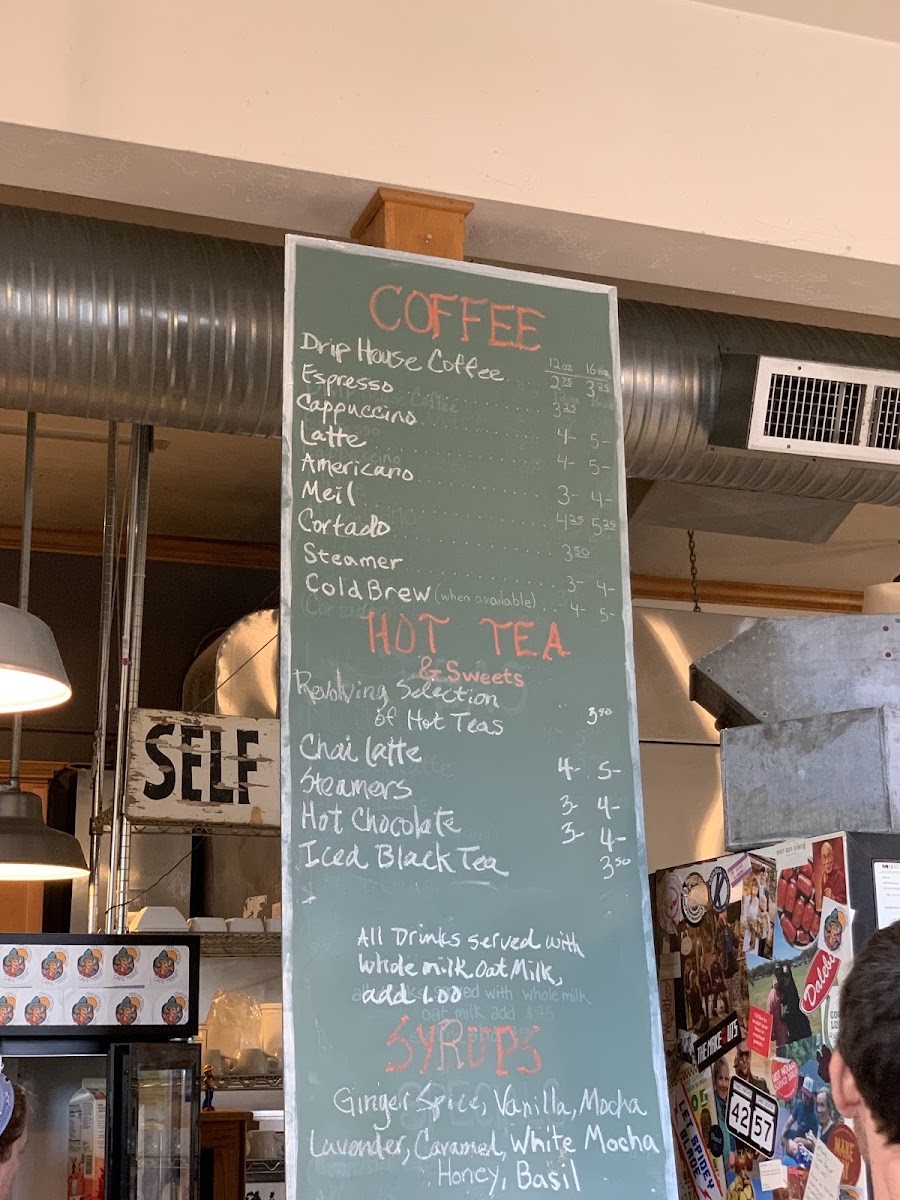 COFFEE
12oz 16oz
Drip House Coffee 2.25 3.25
Espresso 3.25
Cappuccino 4- 5-
Latte 4- 5-
Americano 3- 4-
Meil 4.25 5.25
Cortado 3.50
Steamer 3- 4-
Cold Brew (when available) 4- 5-
HOT TEA
& Sweets
Revolving Selection
of Hot Teas 3.50
Chai Latte 4- 5-
Steamers 3- 4-
Hot Chocolate 3- 4-
Iced Black Tea 3.50
All Drinks served with
whole milk Oat Milk,
add 1.00
SYRUPS
Ginger Spice, Vanilla, Mocha
Lavender, Caramel, White Mocha
Honey, Basil
SELF
Dalebo
THE MAKE OUTS
LET SPIDEY
42 57